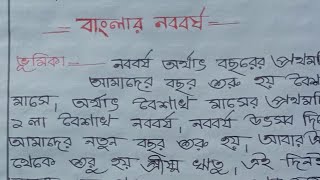 বাংলার নববর্ষ
ভূমিকা — নববর্ষ অর্থাৎ বছরের প্রথম
আমাদের বছর শুরু হয়
মাসে, অর্থাৎ বৈশাখ মাসের প্রথম
১লা বৈশাখ নববর্ষ, নববর্ষ উৎসব
আমাদের নতুন বছর শুরু হয়, আবার
থেকে শুরু হয় গ্রীষ্ম ঋতু, এই দিন